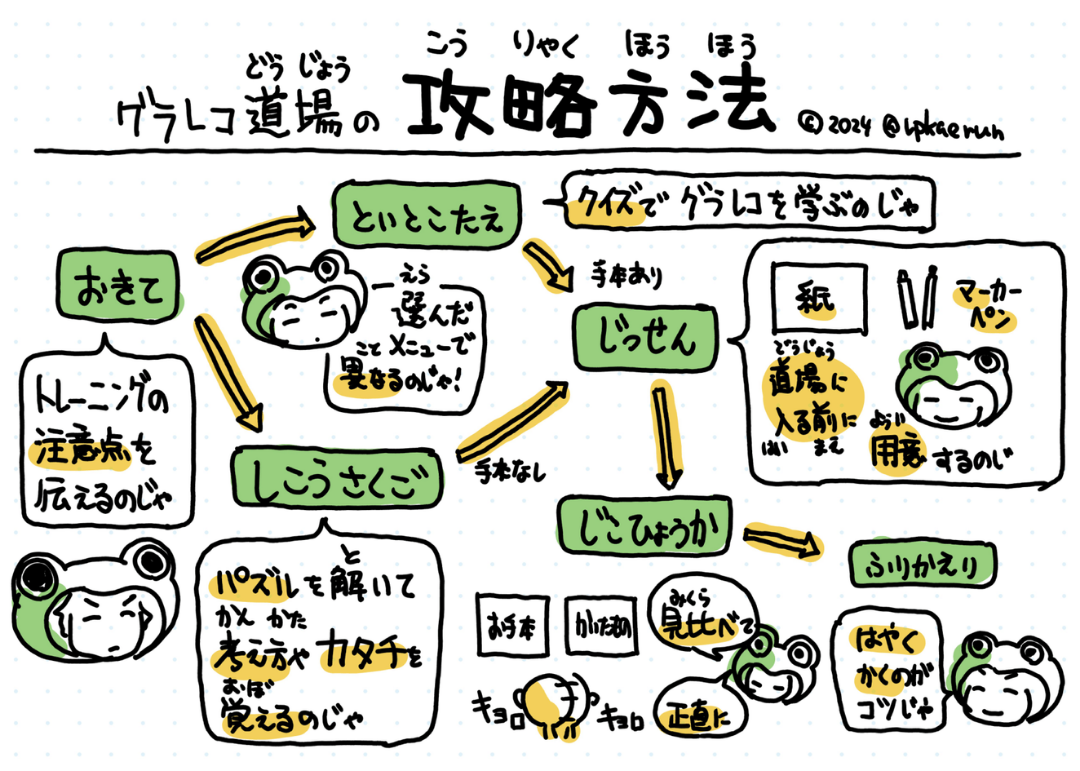 こう りゃく ほう ほう
どう じょう
グラレコ道場の 攻略方法 © 2024 @ipkaerun
おきて
トレーニングの
注意点を
伝えるのじゃ
といとこたえ
クイズで グラレコを学ぶのじゃ
えら
選んだ
こと メニューで
異なるのじゃ!
しこうさくご
と
パズルを解いて
かんがえ かた
考え方や カタチを
おぼ
覚えるのじゃ
手本あり
手本なし
じっせん
紙
マーカー
ペン
どうじょう
道場に
入る前に
はい まえ
ようい
用意するのじ
じこひょうか
お手本
かいたもの
みくら
見比べて
キョロ キョロ
正直に
ふりかえり
はやく
かくのが
コツじゃ